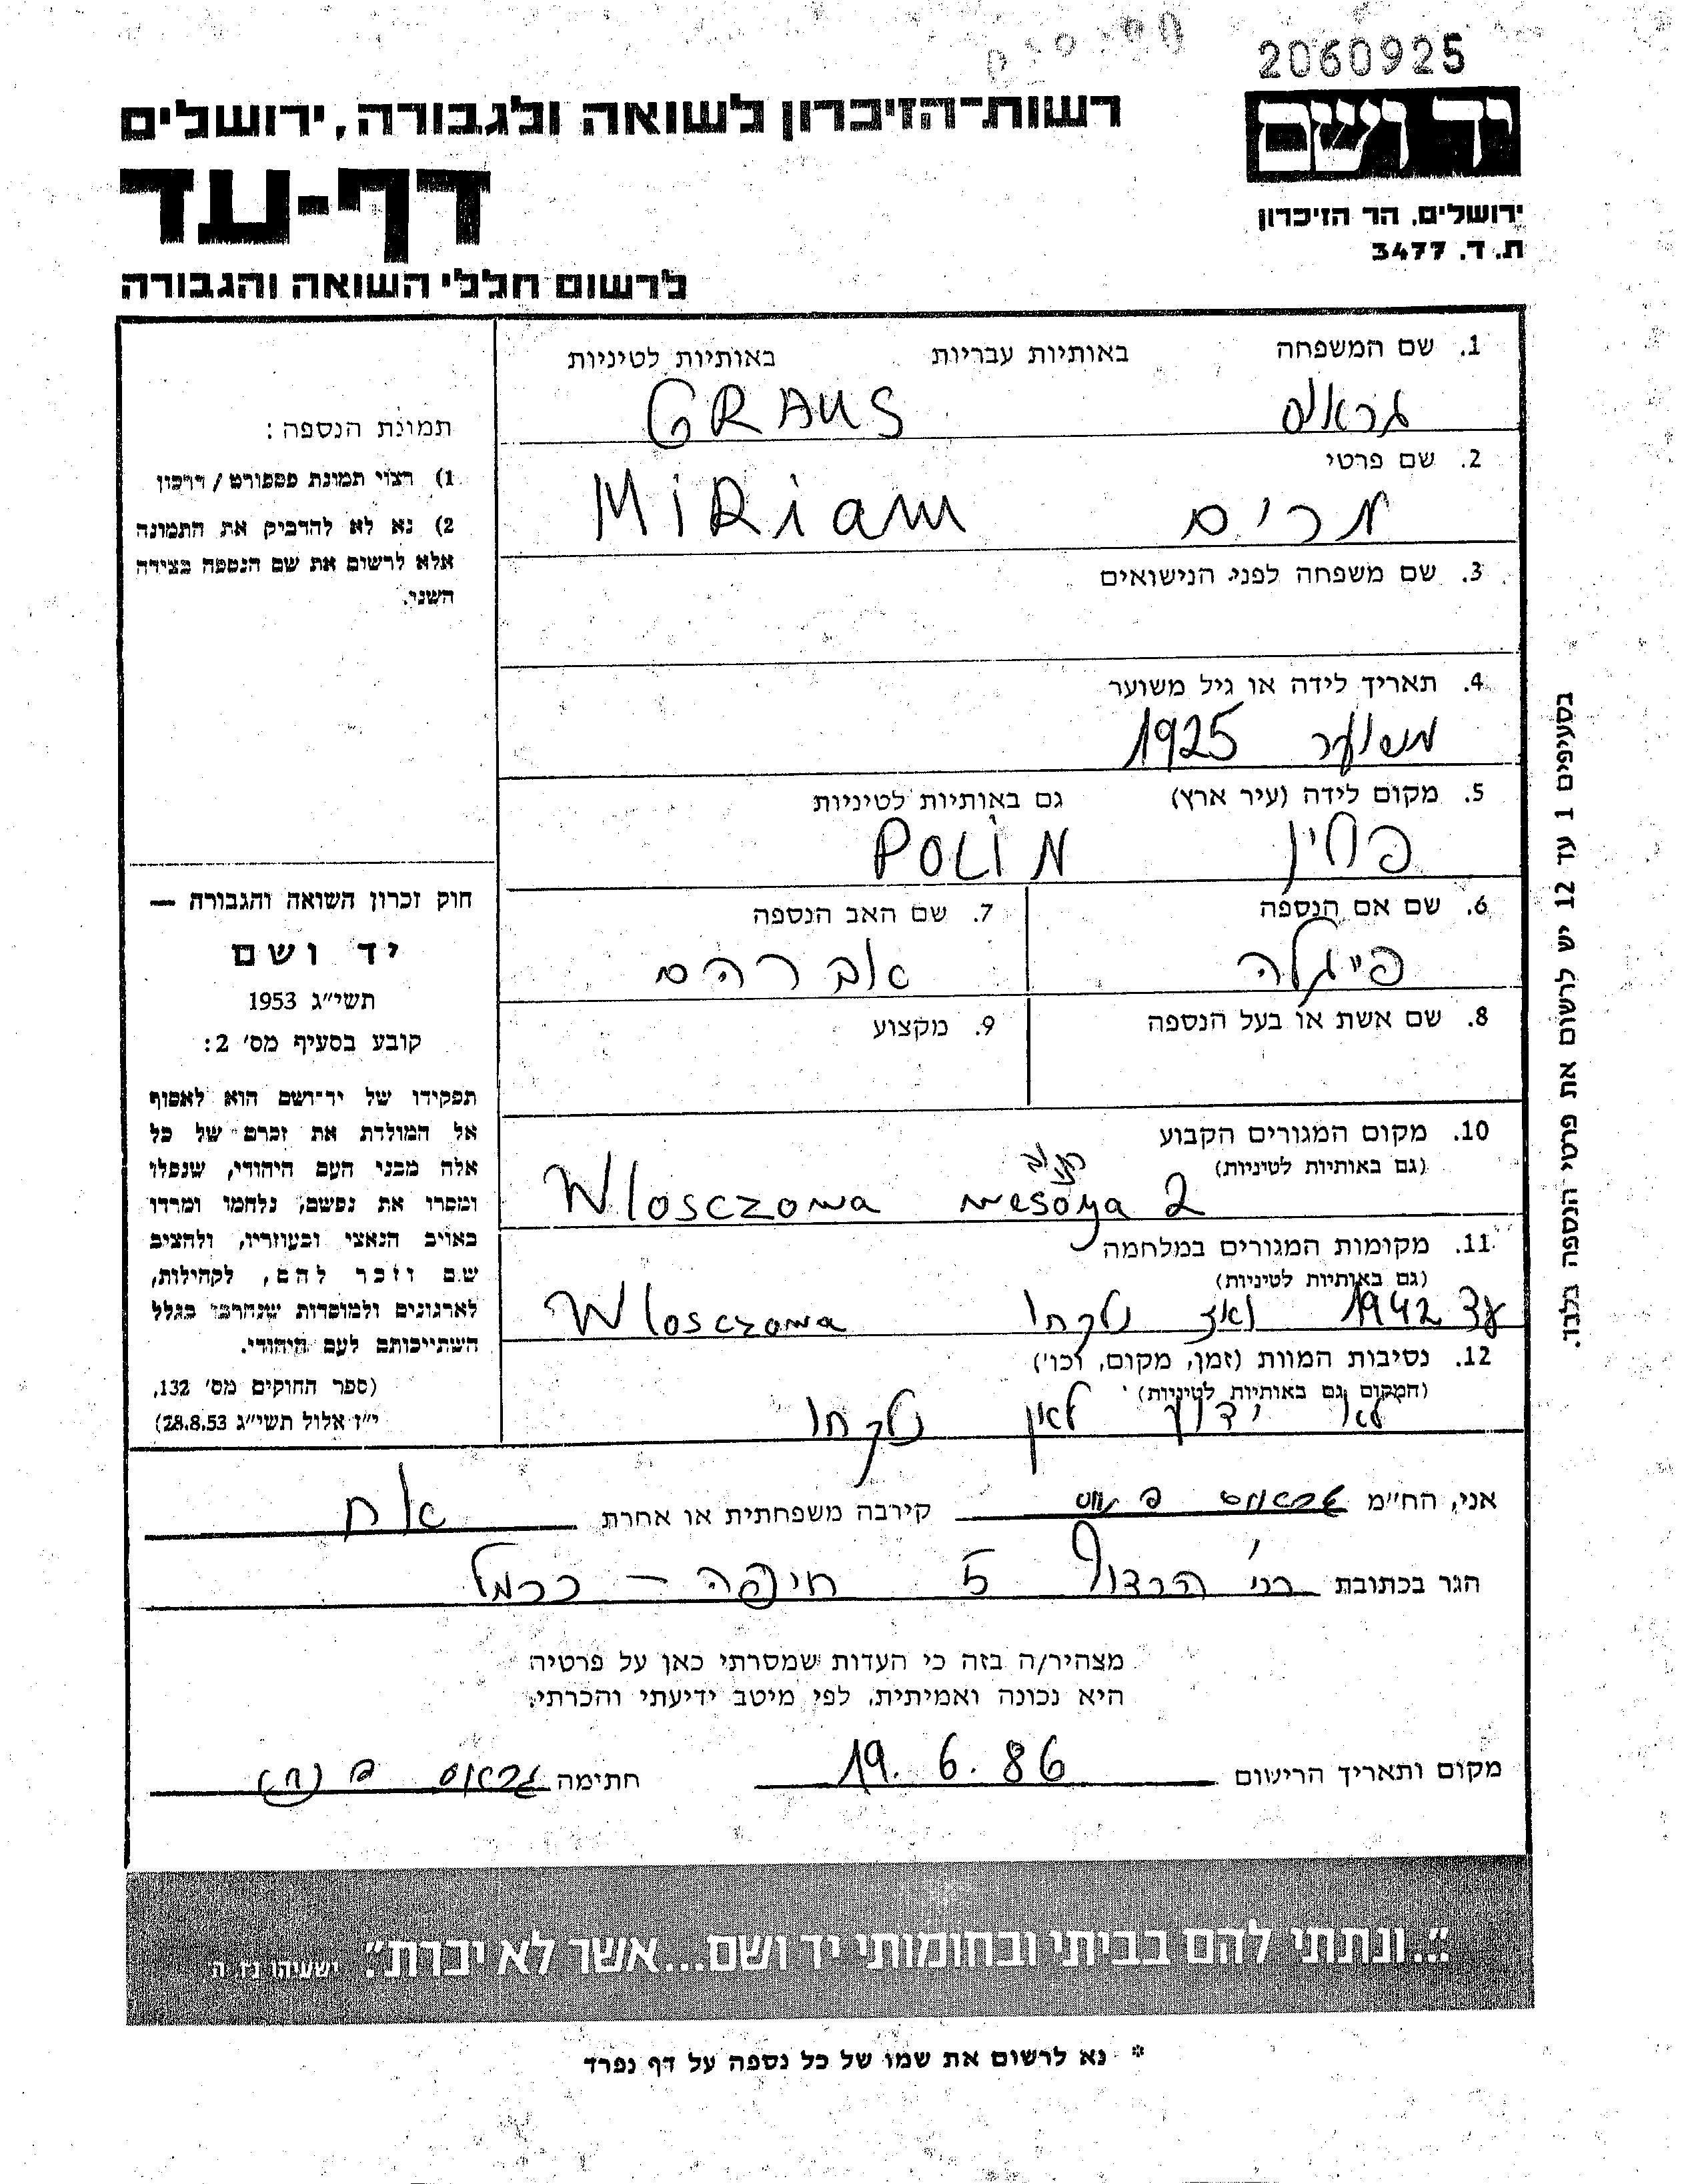 2060925
יד ושם
רשות־הזיכרון לשואה ולגבורה, ירושלים
דף-עד
ירושלים, הר הזיכרון
ת. ד. 3477
לרשום חללי השואה והגבורה
1. שם המשפחה באותיות עבריות באותיות לטיניות
גראוס GRAUS
2. שם פרטי
מרים MiRiam
3. שם משפחה לפני הנישואים
4. תאריך לידה או גיל משוער
משוער 1925
5. מקום לידה (עיר ארץ) גם באותיות לטיניות
פולין POLIN
6. שם אם הנספה 7. שם האב הנספה
פייגלה אברהם
8. שם אשת או בעל הנספה 9. מקצוע
10. מקום המגורים הקבוע
(גם באותיות לטיניות)
Wlosczowa wesoya 2
11. מקומות המגורים במלחמה
(גם באותיות לטיניות)
עד 1942 ואז נלקחו Wlosczowa
12. נסיבות המוות (זמן, מקום, וכו')
(המקום גם באותיות לטיניות)
לא ידוע לאן נלקחו
תמונת הנספה:
1) רצוי תמונת פספורט / דרכון
2) נא לא להדביק את התמונה
אלא לרשום את שם הנספה בצידה
השני.
חוק זכרון השואה והגבורה —
יד ושם
תשי״ג 1953
קובע בסעיף מס' 2:
תפקידו של יד־ושם הוא לאסוף
אל המולדת את זכרם של כל
אלה מבני העם היהודי, שנפלו
ומסרו את נפשם, נלחמו ומרדו
באויב הנאצי ובעוזריו, ולהציב
שם וזכר להם, לקהילות,
לארגונים ולמוסדות שנחרבו בגלל
השתייכותם לעם היהודי.
(ספר החוקים מס' 132,
י״ז אלול תשי״ג 28.8.53)
בסעיפים 1 עד 12 יש לרשום את פרטי הנספה בלבד.
אני, הח״מ גראוס קירבה משפחתית או אחרת אח
הגר בכתובת 5 חיפה - כרמל
מצהיר/ה בזה כי העדות שמסרתי כאן על פרטיה
היא נכונה ואמיתית, לפי מיטב ידיעתי והכרתי.
מקום ותאריך הרישום 19.6.86 חתימה גראוס
"...ונתתי להם בביתי ובחומותי יד ושם...אשר לא יכרת". ישעיהו נו ה
* נא לרשום את שמו של כל נספה על דף נפרד